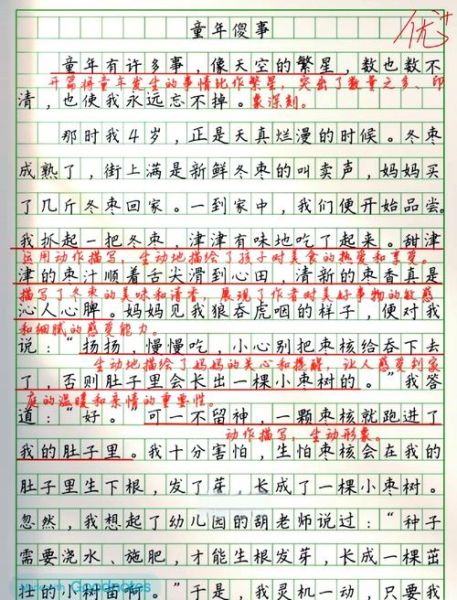 童年傻事
优+
童年有许多事，像天空的繁星，数也数不
开篇将童年发生的事情比作繁星，突出了数量之多、印
清，也使我永远忘不掉。象深刻。
那时我4岁，正是天真烂漫的时候。冬枣
成熟了，街上满是新鲜冬枣的叫卖声，妈妈买
了几斤冬枣回家。一到家中，我们便开始品尝。
我抓起一把冬枣，津津有味地吃了起来。甜津
运用动作描写，生动地描绘了孩子对美食的热爱和享受。
津的枣汁顺着舌尖滑到心田，清新的枣香真是
描写了冬枣的美味和清香，展现了作者对美好事物的敏感
沁人心脾。妈妈见我狼吞虎咽的样子，便对我
和细腻的感受能力。
说：“扬扬，慢慢吃，小心别把枣核给吞下去
生动地描绘了妈妈的关心和提醒，让人感受到家
了，否则肚子里会长出一棵小枣树的。”我答
庭的温暖和亲情的重要性。
道：“好。”可一不留神，一颗枣核就跑进了
动作描写，生动形象。
我的肚子里。我十分害怕，生怕枣核会在我的
肚子里生下根，发了芽，长成了一棵小枣树。
忽然，我想起了幼儿园的胡老师说过：“种子
需要浇水、施肥，才能生根发芽，长成一棵茁
壮的小树苗啊。”于是，我灵机一动，只要我
Goodnotes